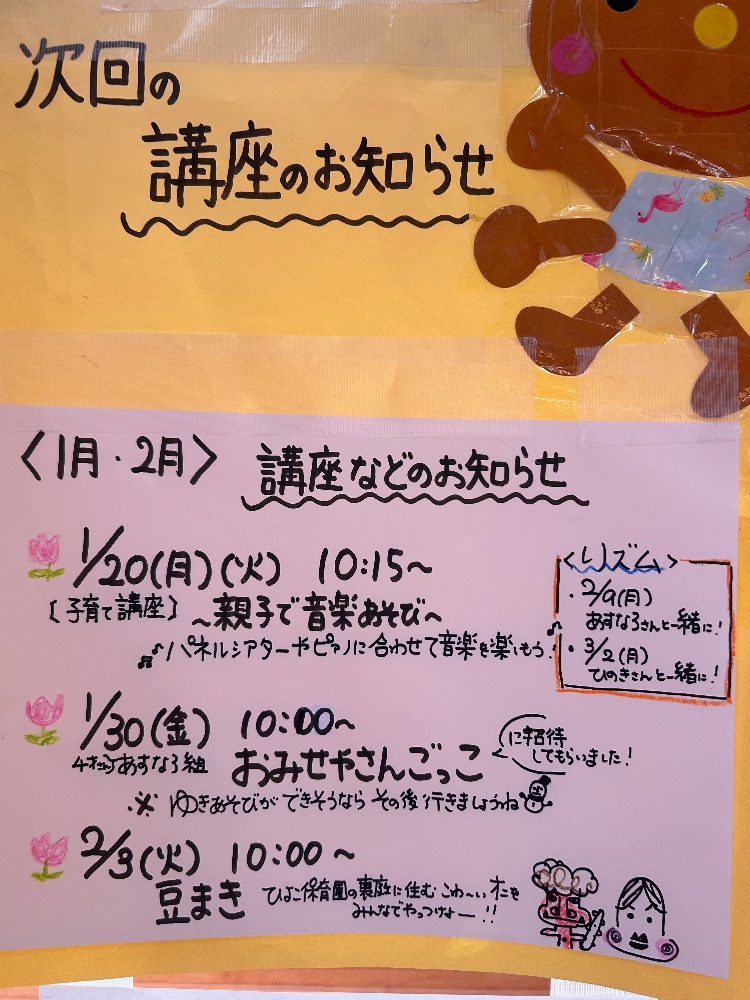 次回の
講座のお知らせ
〈1月・2月〉 講座などのお知らせ
1/20(月)(火) 10:15〜
[子育て講座] 〜親子で音楽あそび〜
♫パネルシアターやピアノに合わせて音楽を楽しもう♪
〈リズム〉
・2/9(月)
あすなろさんと一緒に!
・3/2(月)
ひのきさんと一緒に!
1/30(金) 10:00〜
4才あすなろ組 おみせやさんごっこ
に招待
してもらいました!
※ ゆきあそびができそうなら その後行きましょうね
2/3(火) 10:00〜
豆まき
ひよこ保育園の裏庭に住む こわ〜い オニを
みんなでやっつけよー!!